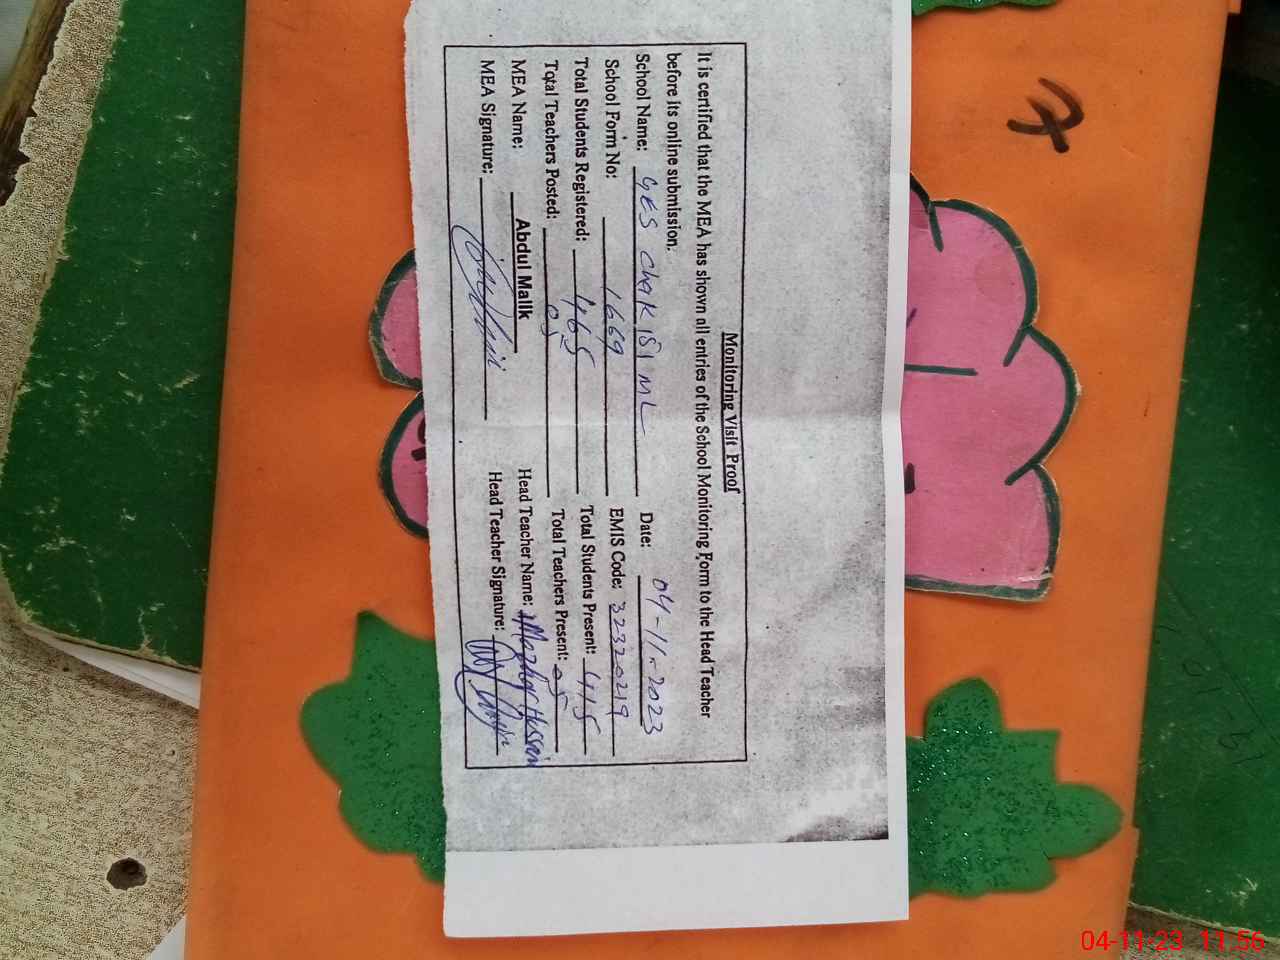 Monitoring Visit Proof
It is certified that the MEA has shown all entries of the School Monitoring Form to the Head Teacher
before its online submission.
School Name: GES Chak 181 ML Date: 04-11-2023
School Form No: 1669 EMIS Code: 32320219
Total Students Registered: 465 Total Students Present: 415
Total Teachers Posted: 05 Total Teachers Present: 05
MEA Name: Abdul Malik Head Teacher Name: Mazhar Hussain
MEA Signature: Head Teacher Signature:
04-11-23 11:56